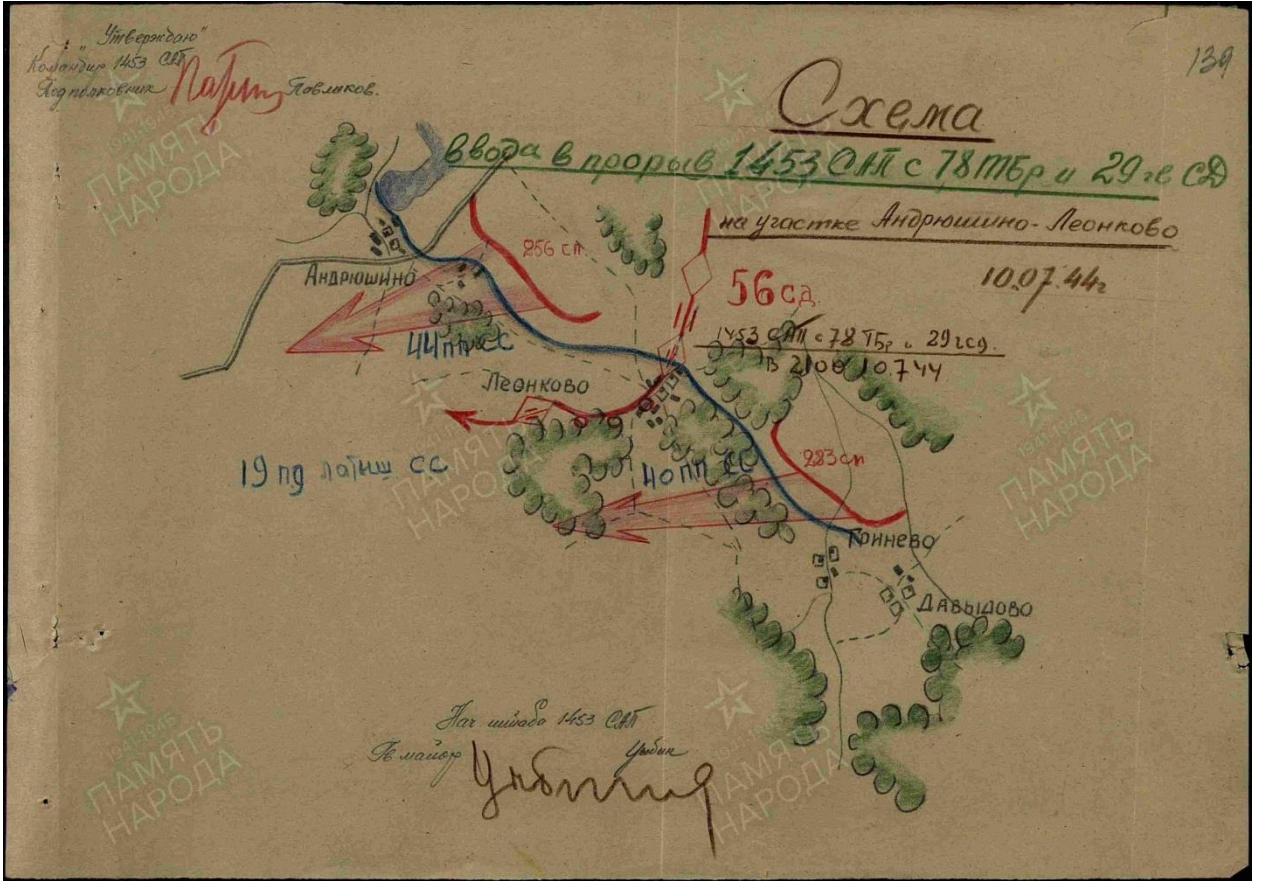 "Утверждаю"
Командир 1453 САП
Подполковник Павликов.
139
Схема
ввода в прорыв 1453 САП с 78 ТБр и 29 гв СД
на участке Андрюшино-Леонково
10.07.44г
256 сп
56 сд.
1453 САП с 78 ТБр и 29 гсд.
В 2100 10.7.44
Андрюшино
44 пп СС
Леонково
19 пд латыш СС
40 пп СС
283 сп
Гринево
Давыдово
Нач штаба 1453 САП
Гв майор
1941-1945
ПАМЯТЬ
НАРОДА
1941-1945
ПАМЯТЬ
НАРОДА
1941-1945
ПАМЯТЬ
НАРОДА
1941-1945
ПАМЯТЬ
НАРОДА
1941-1945
ПАМЯТЬ
НАРОДА